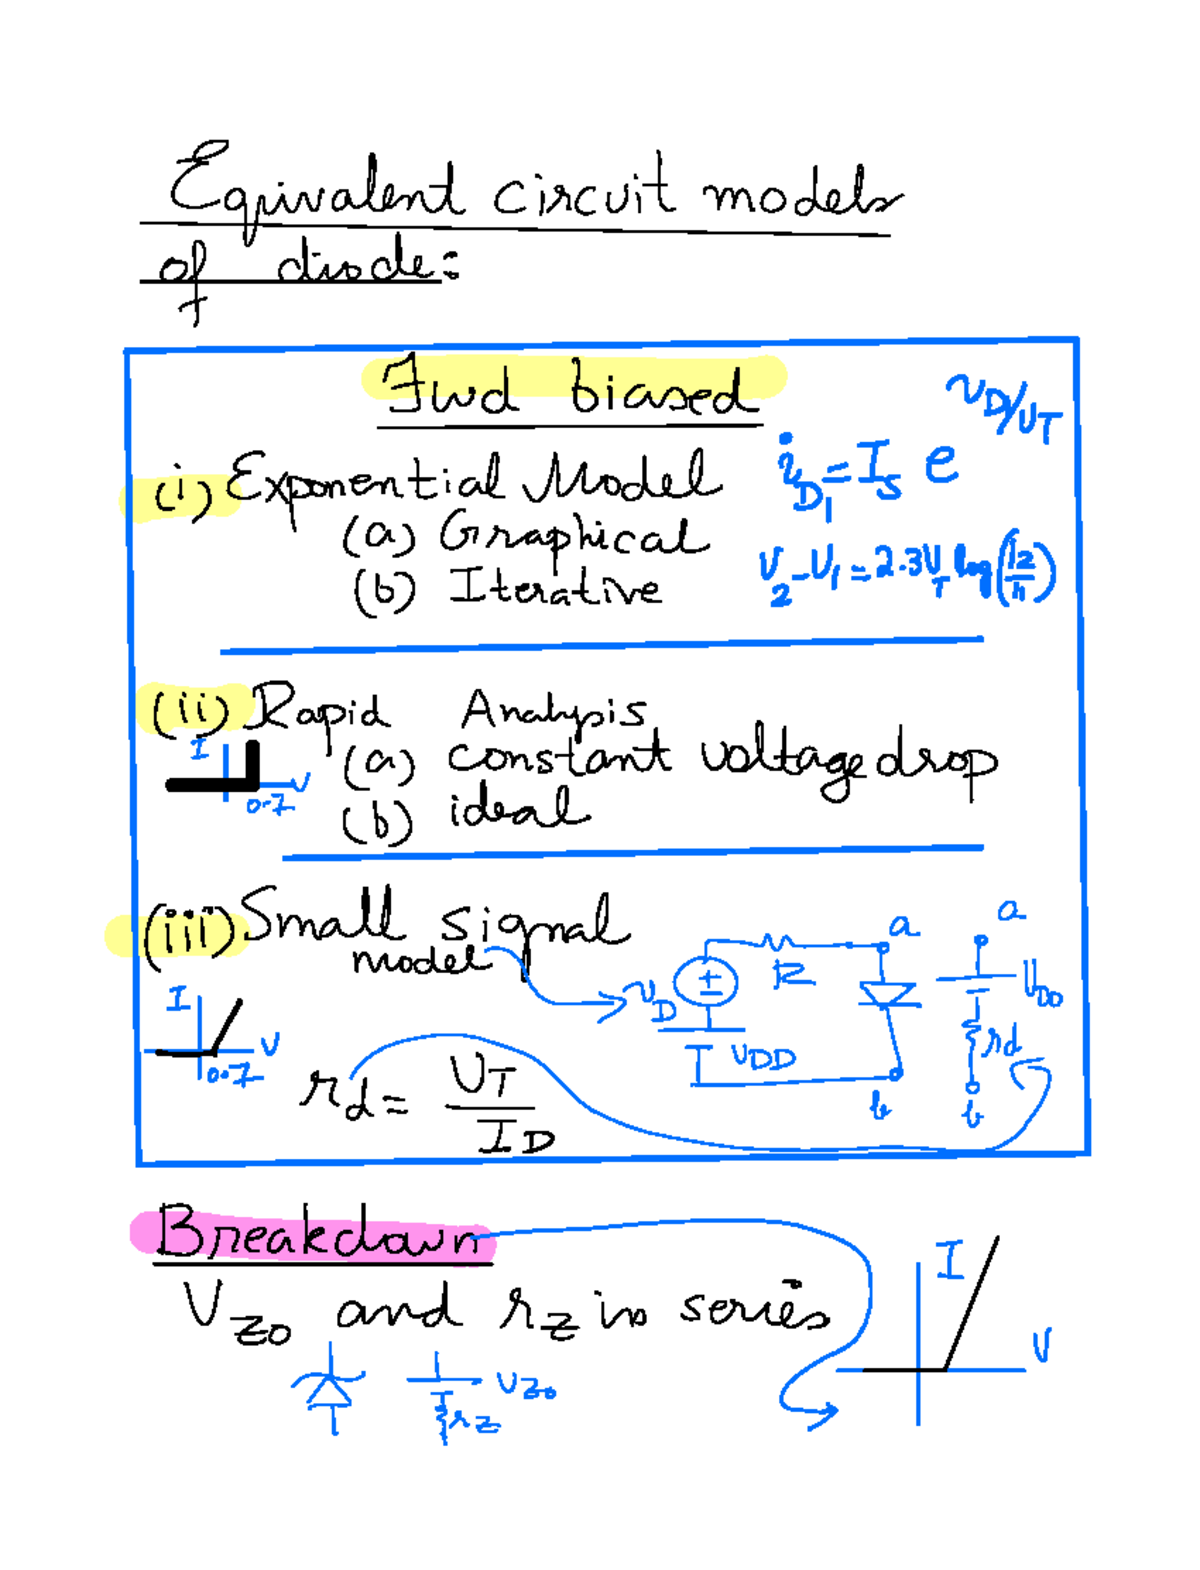 Equivalent circuit models
of diode:
Fwd biased
(i) Exponential Model
(a) Graphical
(b) Iterative
i_D1 = I_S e^(v_D/v_T)
V_2 - V_1 = 2.3 V_T log(i_2/i_1)
(ii) Rapid Analysis
(a) constant voltage drop
(b) ideal
I
V
0.7
(iii) Small signal
model
I
V
0.7
r_d = V_T / I_D
v_D
+
R
a
b
V_DD
a
V_D0
r_d
b
Breakdown
V_Z0 and r_Z in series
V_Z0
r_Z
I
V